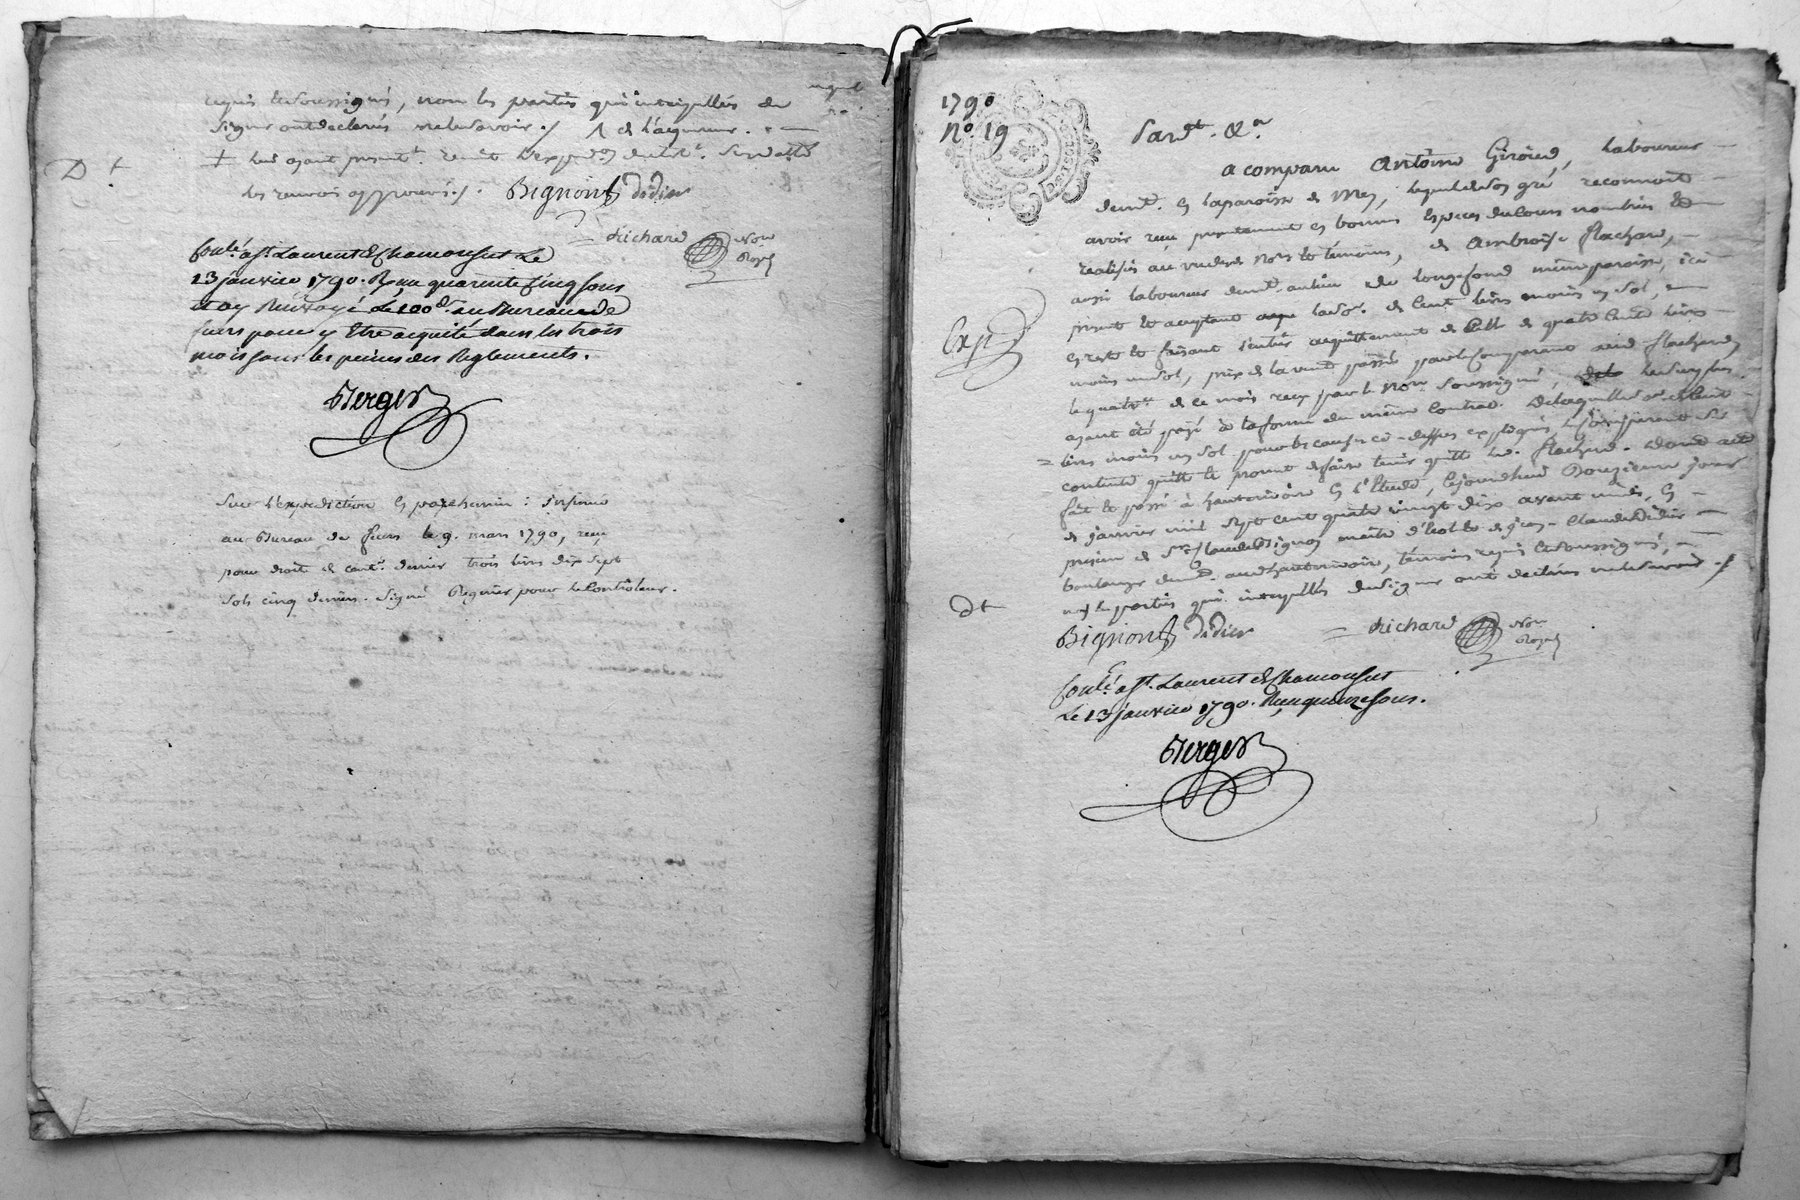 requis et soussignés, non les parties qui interpellés de
signer ont déclarés ne le savoir ./. de l'acquereur. —
les renvois approuvés ./. Bignon Didier
Richard Nore Royal
Conlé. a St. Laurent de Chamousset Le
13 janvier 1790. Reçu quarente cinq sous
et ay Renvoyé Le 100d. au Bureau de
feurs pour y Etre acquité dans les trois
mois sous les peines des Reglements.
Berger
Sur l'expedition en parchemin : insinué
au Bureau de feurs le 9. mars 1790, reçu
pour droit de cent. denier trois livres dix sept
sols cinq deniers. Signé Regnier pour le Controleur.
1790
No. 19
Pardt. &a.
a comparu Antoine Giroud, laboureur
demt. en la paroisse de Mes, lequel de son gré reconnoit
avoir reçu presentement en bonnes especes de cours nombrées et
realisés au vu de nous et temoins, de Ambroise flachard,
aussi laboureur demt. au lieu de Longefond même paroisse, ici
present et acceptant la so. de Cent livres moins un sol,
en reste et faisant l'entier acquittement de celle de quatre cents livres
moins un sol, prix de la vente passée par le comparant aud. flachard,
le quatre de ce mois reçu par le Nore. soussigné, le surplus
ayant été payé à la forme du même Contrat. De laquelle so. de Cent
livres moins un sol pour les causes ci-dessus expliqués le comparant se
contente quitte et promet de faire tenir quitte led. flachard. Dont acte
fait et passé à hauterivoire en l'Etude, le jourdhui Douzieme jour
de janvier mil sept cent quatre vingt dix avant midi, en
presence de Sr. Claude Bignon maitre d'école et de sr. Claude Didier
boulanger demt. aud. hauterivoire, témoins requis et soussignés,
non les parties qui interpellés de signer ont declarés ne le savoir ./.
Expd
Bignon Didier Richard Nore Royal
Conlé. a St. Laurent de Chamousset
Le 13 janvier 1790. Reçu quinze sous.
Berger